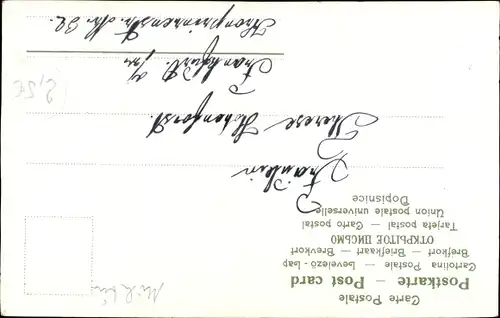 Carte Postale
Postkarte — Post card
Cartolina Postale — Levelező-Lap
Brefkort — Briefkaart — Brevkort
ОТКРЫТОЕ ПИСЬМО
Tarjeta postal — Carto postal
Union postale universelle
Dopisnice
Fräulein
Therese
Frankfurt a/m
Kronprinzenstr. Nr. 32.
2,5€